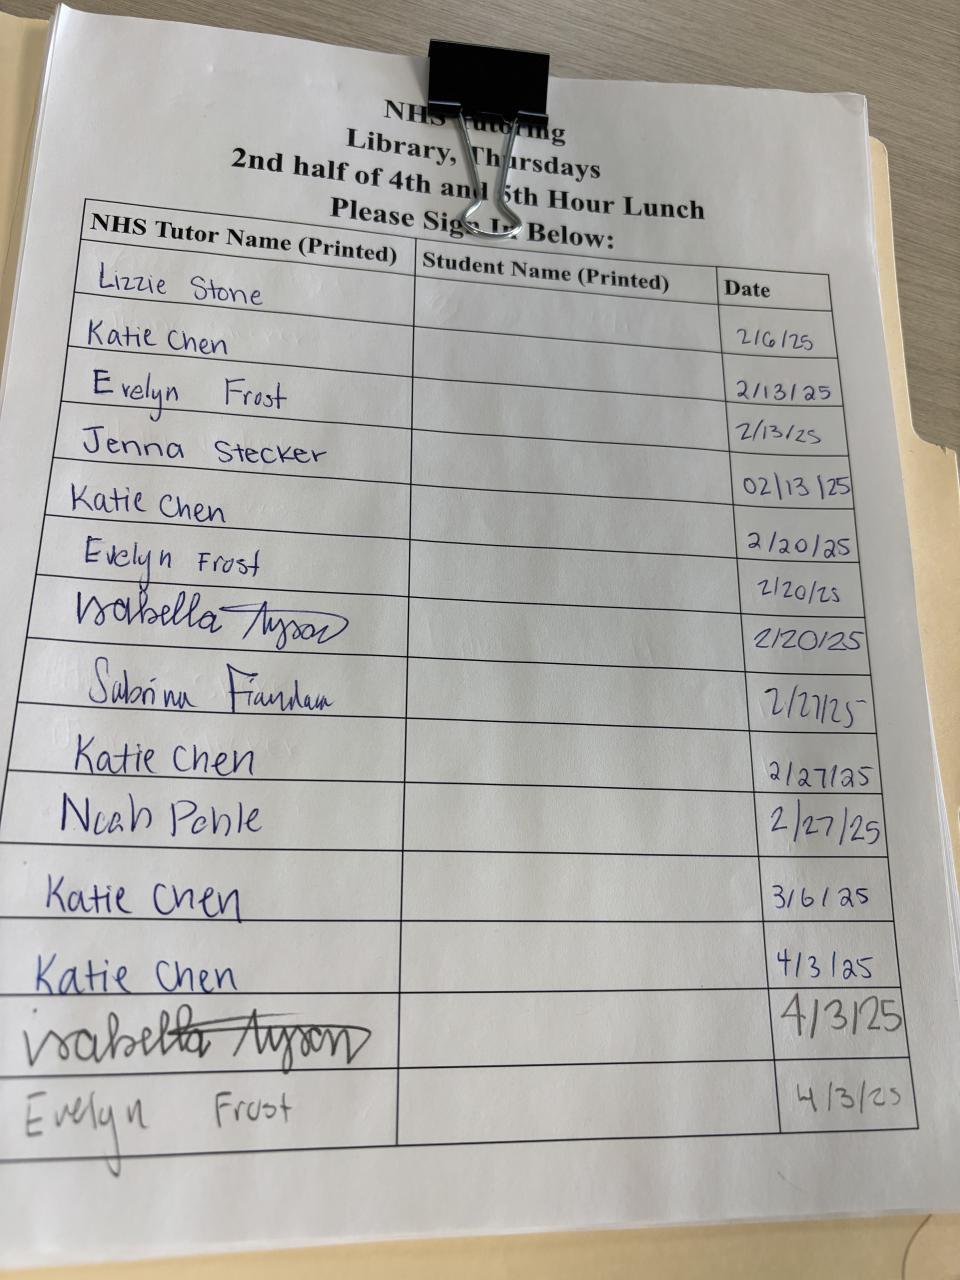 NHS Tutoring
Library, Thursdays
2nd half of 4th and 5th Hour Lunch
Please Sign In Below:
NHS Tutor Name (Printed) Student Name (Printed) Date
Lizzie Stone 2/6/25
Katie Chen 2/13/25
Evelyn Frost 2/13/25
Jenna Stecker 02/13/25
Katie Chen 2/20/25
Evelyn Frost 2/20/25
Isabella Tyson 2/20/25
Sabrina 2/27/25
Katie Chen 2/27/25
Noah Pohle 2/27/25
Katie Chen 3/6/25
Katie Chen 4/3/25
isabella Tyson 4/3/25
Evelyn Frost 4/3/25